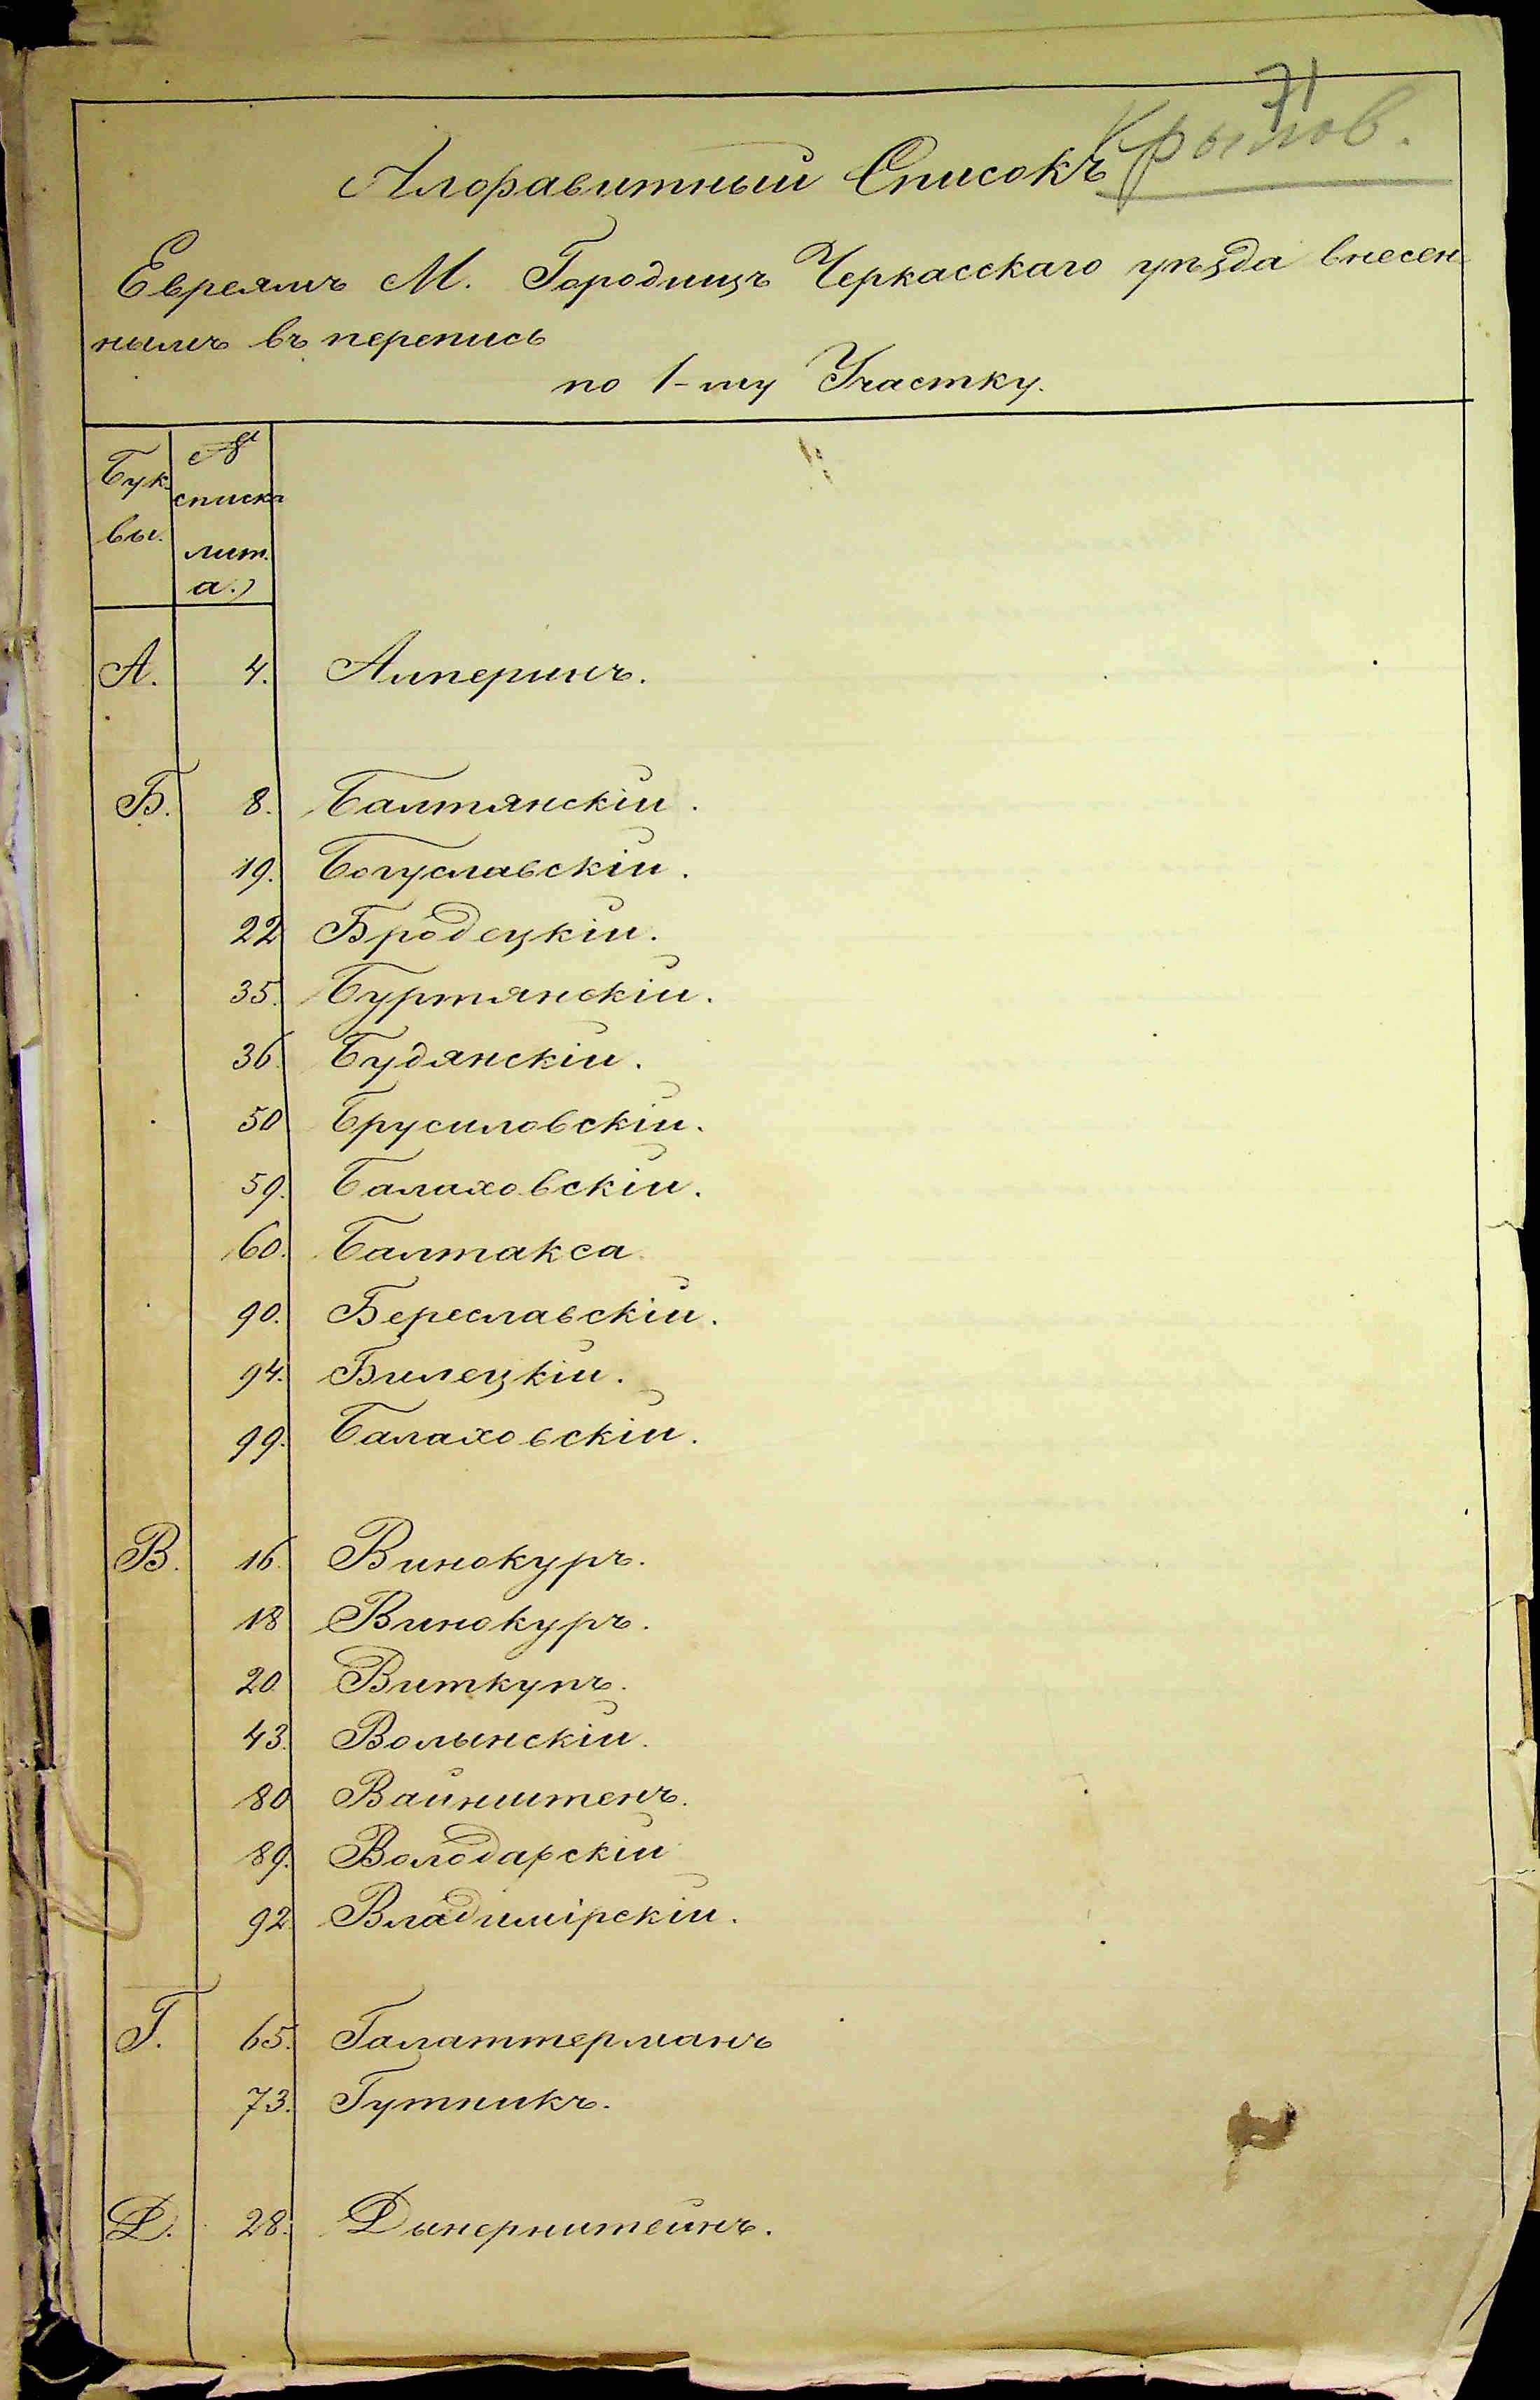 71
Крылов.
Алфавитный Списокъ
Евреямъ М. Городищъ Черкасскаго уѣзда внесен-
нымъ въ перепись
по 1-му Участку.
Бук-
вы.
№
списка
лит.
а.)
А. 4. Алперинъ.
Б. 8. Балтянскій.
19. Богуславскій.
22 Бродецкій.
35. Буртянскій.
36. Будянскій.
50 Брусиловскій.
59. Балаховскій.
60. Балтакса
90. Береславскій.
94. Билецкій.
99. Балаховскій.
В. 16. Винокуръ.
18 Винокуръ.
20 Виткупъ.
43. Волынскій.
80 Вайнштенъ.
89. Володарскій
92. Владимірскій.
Г. 65. Галаттерманъ
73. Гутникъ.
Д. 28. Дынерштейнъ.